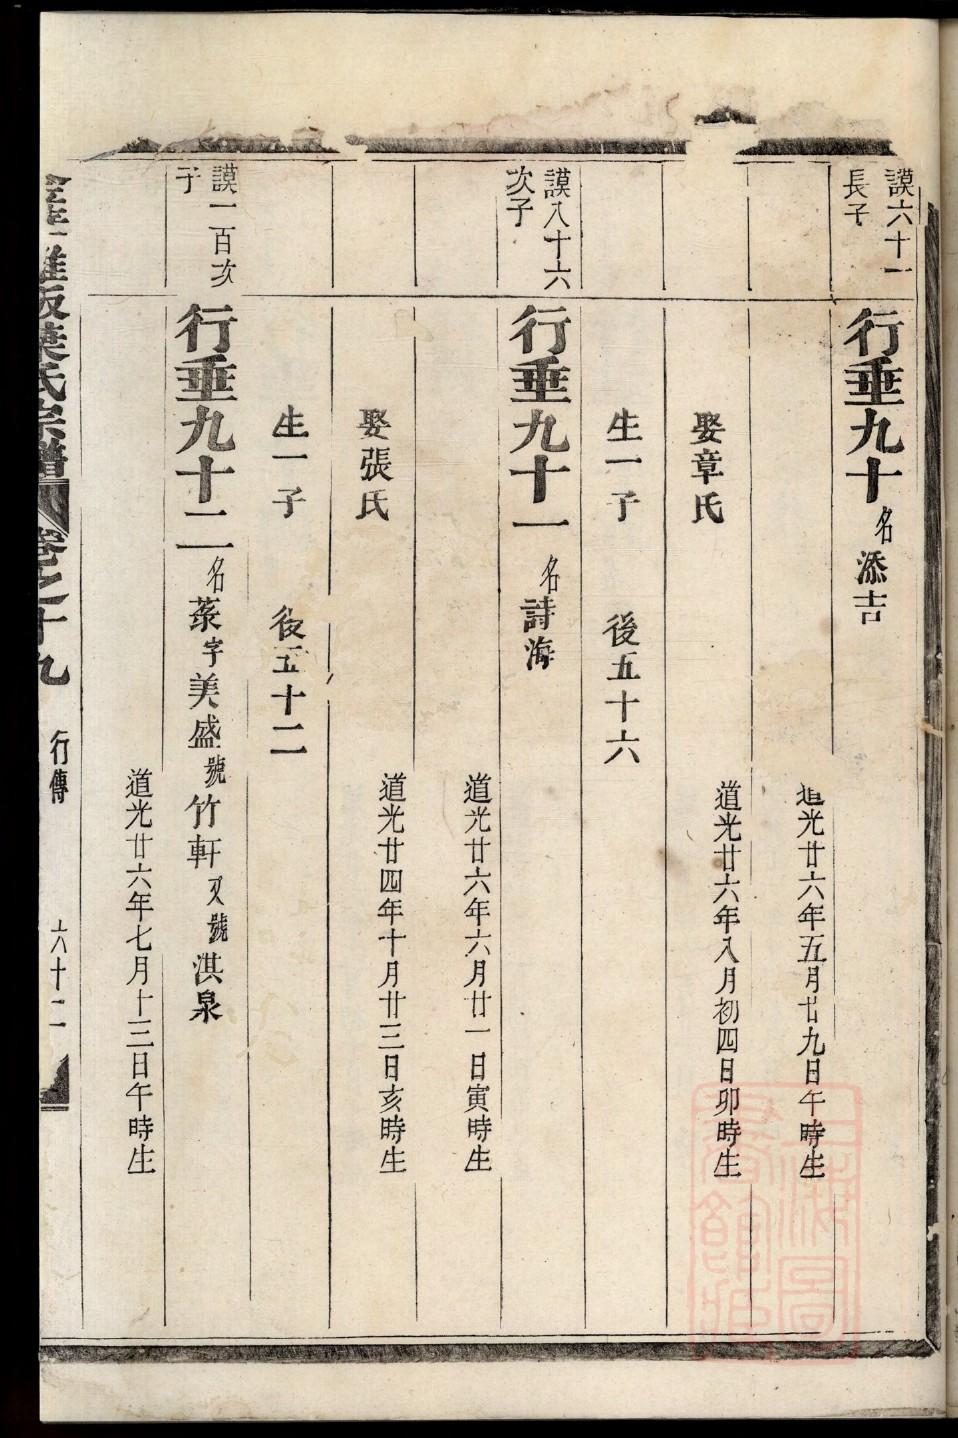 謨六十一
長子
行垂九十 名 添吉
道光廿六年五月廿九日午時生
娶章氏
道光廿六年八月初四日卯時生
生一子 後五十六
謨八十六
次子
行垂九十一 名 詩海
道光廿六年六月廿一日寅時生
娶張氏
道光廿四年十月廿三日亥時生
生一子 後五十二
謨一百次
子
行垂九十二 名 棻 字 美盛 號 竹軒 又號 淇泉
道光廿六年七月十三日午時生
葉氏宗譜 卷之十九 行傳 六十二
上海圖
書館藏